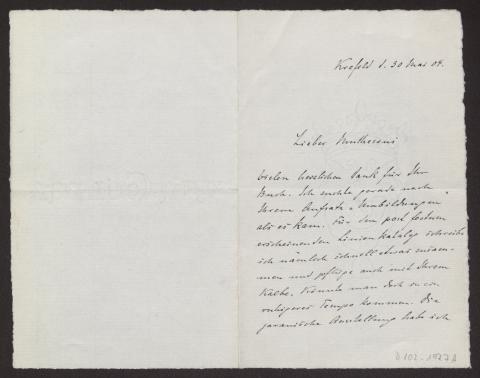 Krefeld d. 30 Mai 04.
Lieber Muthesius
Vielen herzlichen Dank für Ihr
Buch. Ich suchte gerade nach
Ihrem Aufsatz
als es kam. Für den post festum
erscheinenden Linienkatalog schreibe
ich nämlich schnell etwas zusam-
men und pflüge auch mit Ihrem
Kalbe. Könnte man doch in ein
ruhigeres Tempo kommen. Die
japanische Ausstellung habe ich
D 102-1977 A